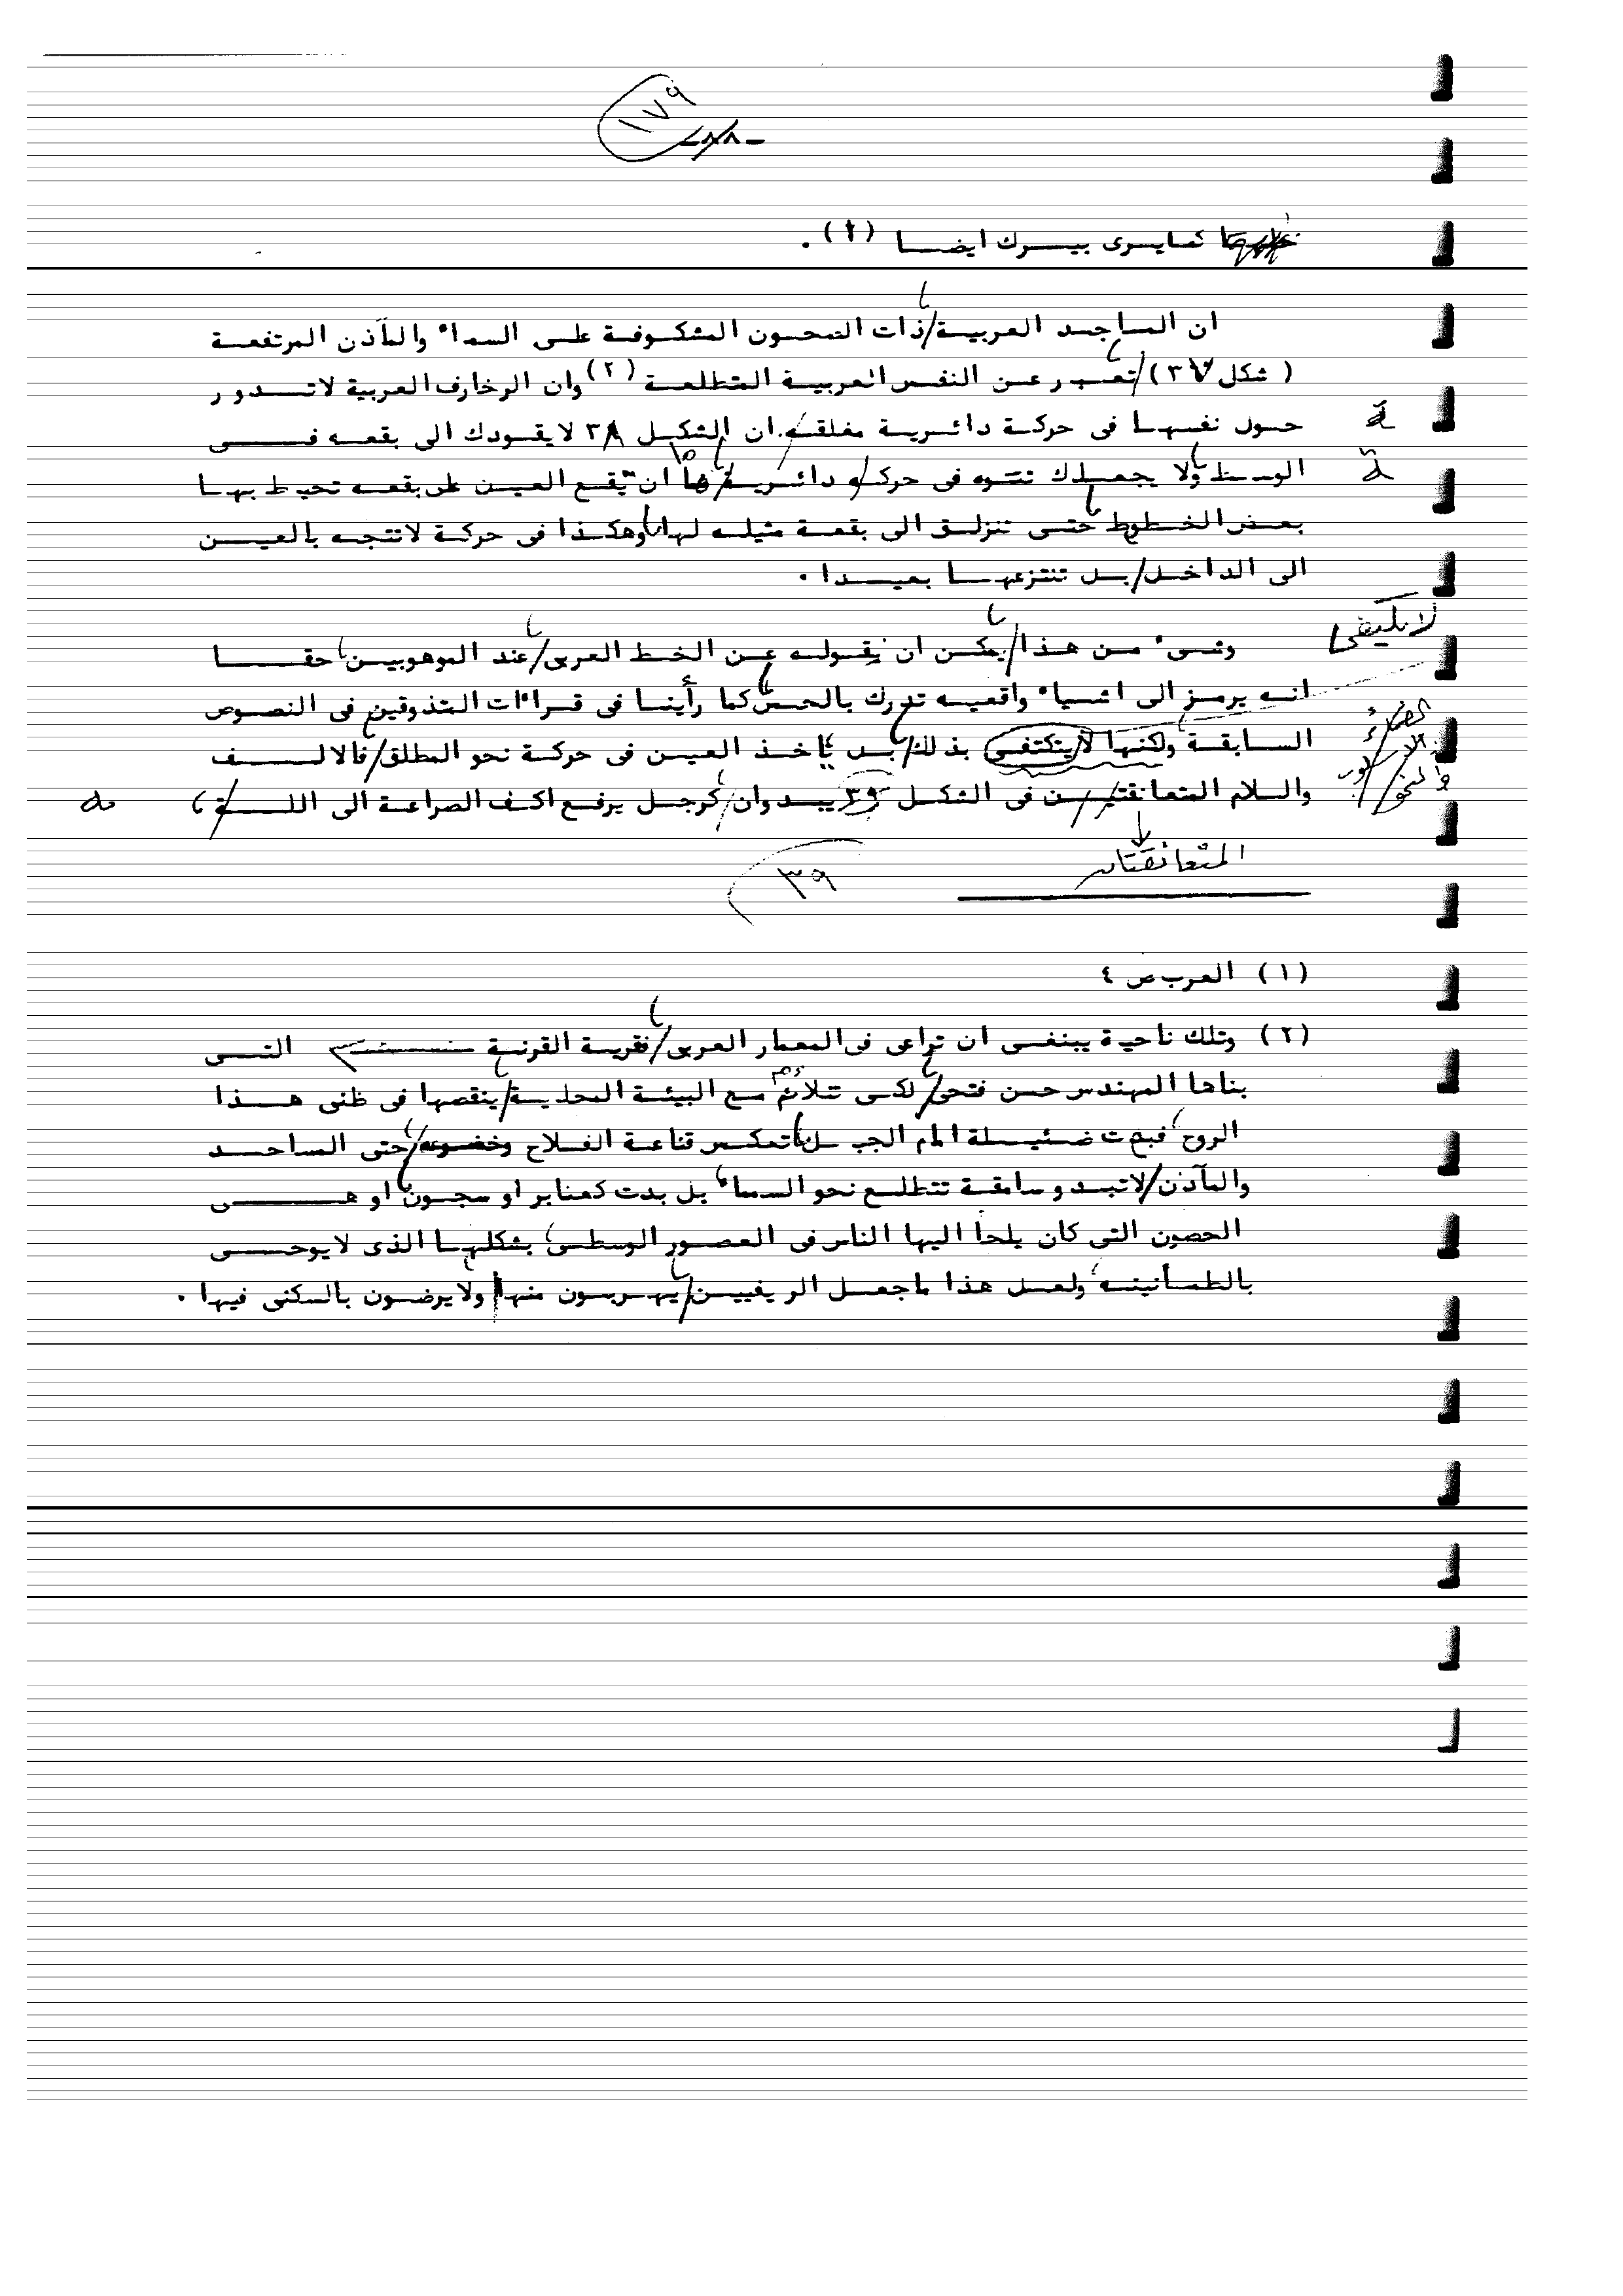 ١٧٩
كما يرى بيرك ايضا (١) .
ان المساجد العربية ذات الصحون المشكوفة على السماء والمآذن المرتفعة
( شكل ٣٧ ) تعبر عن النفس العربية المتطلعة (٢) وان الرخارف العربية لا تدور
حول نفسها فى حركة دائرية مغلقه . ان الشكل ٣٨ لا يقودك الى بقعه فى
الوسط ولا يجعلك تتوه فى حركه دائرية ما ان تقع العين على بقعه تحيط بها
بعض الخطوط حتى تنزلق الى بقعة مثيله لها وهكذا فى حركة لا تتجه بالعين
الى الداخل بل تنتزعها بعيدا .
وشىء من هذا يمكن ان نقوله عن الخط العربى عند الموهوبين حقا
لا يكتفى
انه يرمز الى اشياء واقعيه تدرك بالحس كما رأينا فى قراءات المتذوقين فى النصوص
السابقة ولكنها لا يتكتفى بذلك بل يأخذ العين فى حركة نحو المطلق فالالف
والسلام المتعانقتين فى الشكل ٣٩ يبدوان كرجل يرفع اكف الضراعة الى الله
المتعانقتان
٣٩
(١) العرب ص ٤
(٢) وتلك ناحية يبنغى ان تراعى فى المعمار العربى فقرية القرنة التى
بناها المهندس حسن فتحى لكى تتلائم مع البيئة المحلية ينقصها فى ظنى هذا
الروح فبدت ضئيلة امام الجبل تعكس قناعة الفلاح وخضوعه حتى المساجد
والمآذن لا تبدو سامقة تتطلع نحو السماء بل بدت كعنابر او سجون او هى
الحصون التى كان يلجأ اليها الناس فى العصور الوسطى بشكلها الذى لا يوحى
بالطمأنينه ولعل هذا ما جعل الريفيين يهربون منها ولا يرضون بالسكنى فيها .